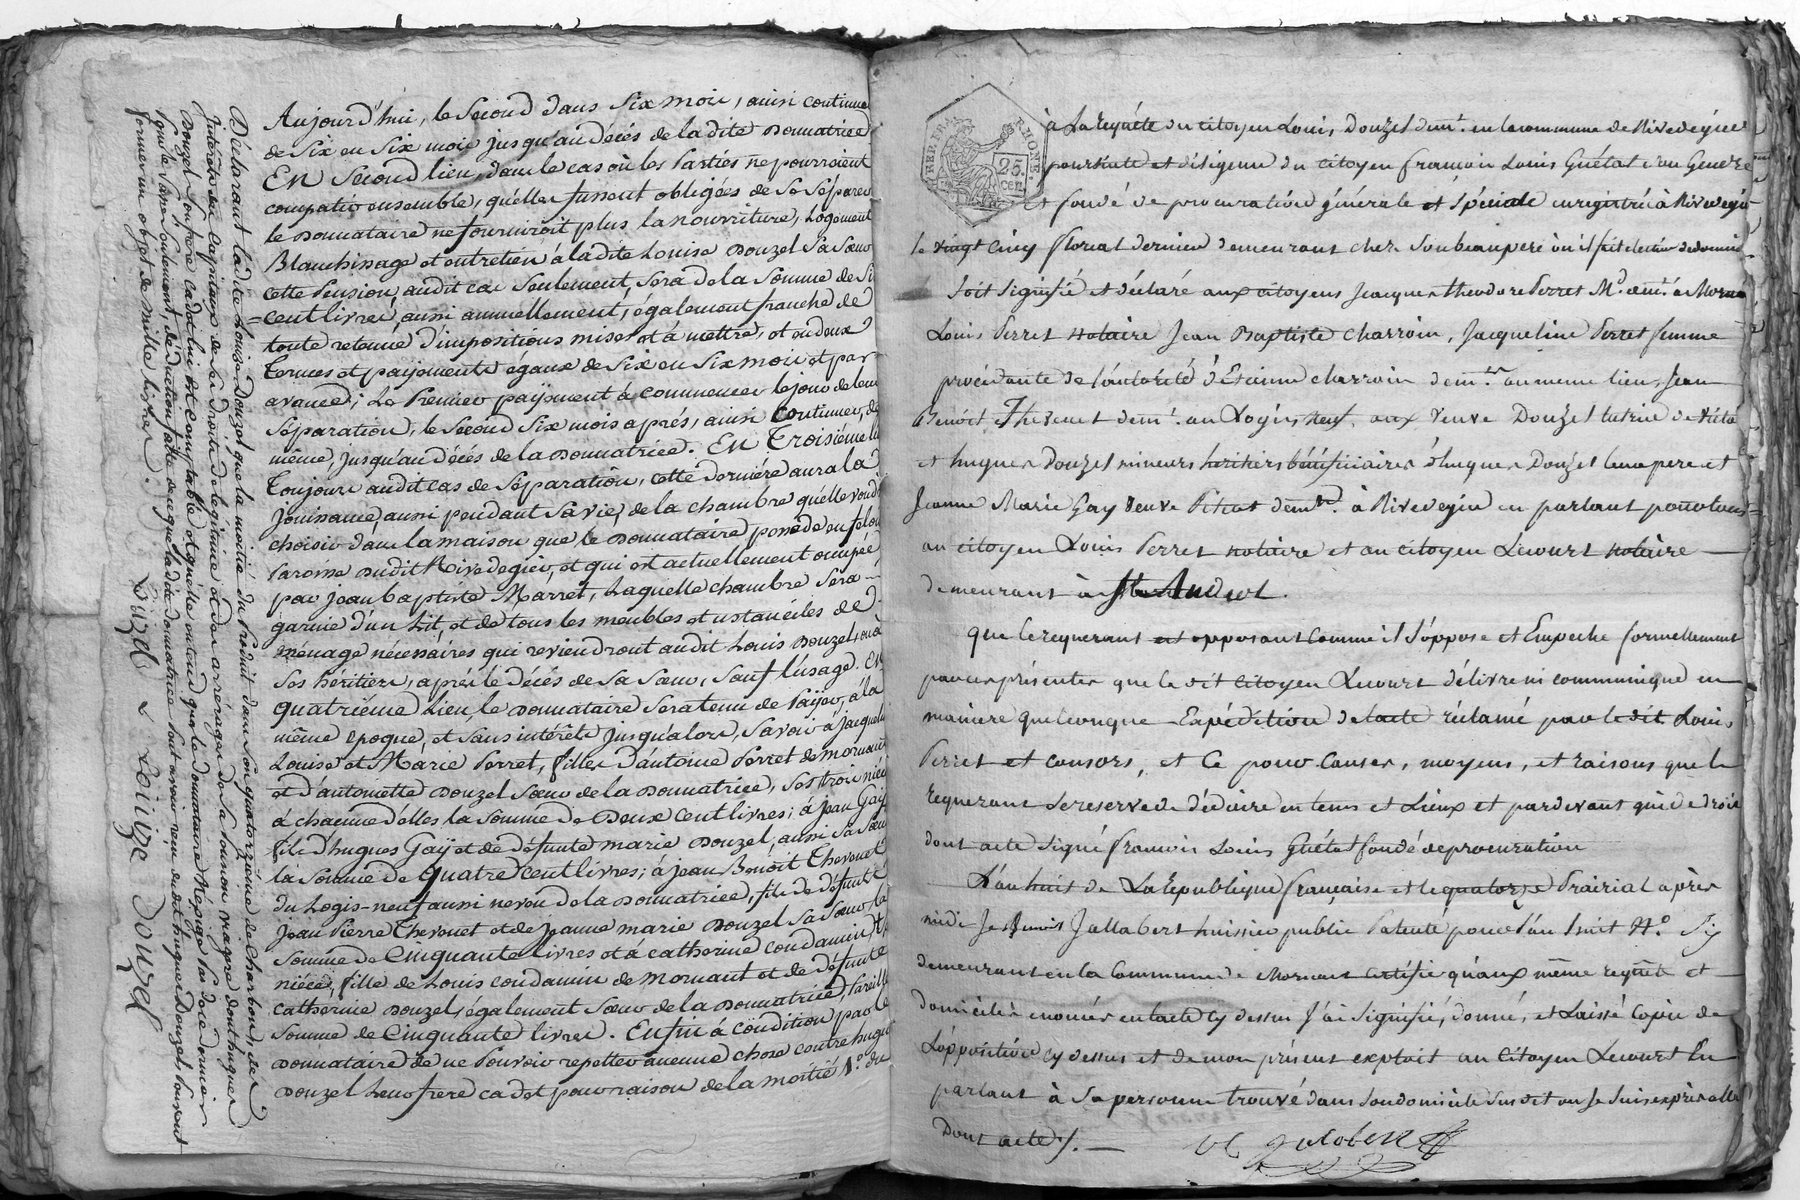 Aujourd'hui, le Second dans Six mois, ainsi continuer
de Six en Six mois jusqu'au décés de la dite Donnatrice
EN Second lieu, dans le cas où les Parties ne pourroient
compatir ensemble, qu'elles fussent obligées de Se Séparer
le Donnataire ne fourniroit plus la nourriture, Logement
Blanchissage et entretien à la dite Louise Douzel Sa Sœur
cette Pension, audit cas Seulement, Sera de la Somme de Six
cent livres, aussi annuellement, également franche de
toute retenue d'impositions mises et à mettre, et en deux
termes et payements égaux de Six en Six mois et par
avance; Le Premier payement à commencer le jour de leur
Séparation, le Second Six mois après, ainsi continuer, de
même, jusqu'au décés de la Donnatrice. EN Troisième lieu
Toujours audit cas de Séparation, cette dernière aura la
Jouissance, aussi pendant Sa vie, de la chambre qu'elle voudra
choisir dans la maison que le Donnataire possède en
Paroisse dudit Rivedegier, et qui est actuellement occupée
par Jean baptiste Marret, Laquelle chambre Sera
garnie d'un Lit, et de tous les meubles et ustanciles de
ménage nécessaires qui reviendront audit Louis Douzel, ou à
Ses héritiers, après le décés de Sa Sœur, Sauf l'usage. EN
Quatrième Lieu, le Donnataire Sera tenu de Païer, à la
même époque, et Sans intérêts jusqu'alors, Savoir à Jacqueline
Louise et Marie Perret, filles d'antoine Perret de mornant
et d'antoinette Douzel Sœur de la Donnatrice, Ses trois nièces
à chacune d'elles la Somme de Deux cent livres; à Jean Gaÿ
fils d'hugues Gaÿ et de défunte marie Douzel, aussi Sa Sœur
la Somme de Quatre cent livres; à Jean Benoit Thevenet
du Logis-neuf aussi neveu de la Donnatrice, fils de défunt
Jean Pierre Thevenet et de Jeanne marie Douzel Sa Sœur la
Somme de Cinquante livres et à catherine condamin
nièce, fille de Louis condamin de Mornant et de défunte
catherine Douzel, également Sœur de la Donnatrice, Pareille
Somme de Cinquante livres. Enfin à condition par le
Donnataire de ne Pouvoir repetter aucune chose contre hugues
Douzel Leur frere cadet pour raison de la moitié
Déclarant la dite Louise Douzel que la moitié du Produit dans Son quatorzième de Charbons, des
Intérêts des Capitaux de Ses droits de légitime et des arrérages de Sa Pension viagère dont hugues
Douzel Son frere cadet lui est comptable et qu'elle entend que le donnataire
Sous la Susne Seulement, déduction faite de ce que la dite Donnatrice avoir reçu dudit hugues Douzel Pourront
former un objet de mille livres.
Douzel L Louize Douzel
REP. FRA.
25.
CEN.
à La requête du citoyen Louis Douzel demt. en la commune de Rivedegier
poursuite et diligence du citoyen françois Louis Guétat Son Gendre
et fondé de procuration générale et Spéciale enregistrée à Rivedegier
le vingt cinq floreal dernier demeurant chez Son beaupere où il fait election de domicile
Soit Signifié et déclaré aux citoyens Jacques theodore Perret Md. demt. à Mornant
Louis Perret Notaire Jean Baptiste Charroin, Jacqueline Perret femme
procédante de l'autorité d'Etienne charroin demts. au meme lieu, Jean
Benoit Thevenet demt. au Logis Neuf, aux veuve Douzel tutrice de
et hugues Douzel mineurs heritiers bénéficiaires d'hugues Douzel leur pere et
Jeanne Marie Gay veuve demte. à Rivedegier en parlant pour tous
au citoyen Louis Perret Notaire et au citoyen Lecourt Notaire
demeurant à St. Andéol.
que le requerant est opposant comme il S'oppose et Empeche formellement
par ces présentes que le dit citoyen Lecourt délivre ni communique en
maniere quelconque Expédition de l'acte réclamé par le dit Louis
Perret et consors, et Ce pour Causes, moyens, et raisons que le
requerant Se reserve de déduire en tems et Lieux et pardevant qui de droit
dont acte Signé françois Louis Guétat fondé de procuration
L'an huit de La République française et le quatorze Prairial après
midi Je Jallabert huissier public Patenté pour l'an huit N.°
demeurant en la Commune de Mornant Certifie qu'aux même requête et
domiciles enoncés en l'acte cy dessus J'ai Signifié, donné, et Laissé Copie de
L'opposition cy dessus et de mon présent exploit au Citoyen Lecourt En
parlant à Sa personne trouvé dans Son domicile Sus dit ou je Suis exprès allé
Dont acte /.